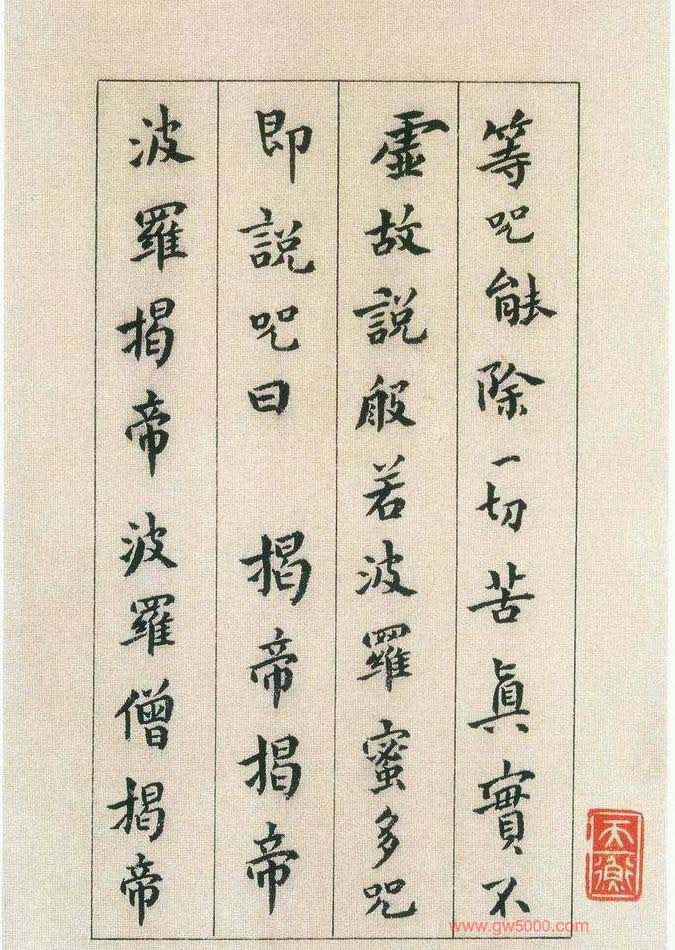 等咒能除一切苦真實不
虛故說般若波羅蜜多咒
即說咒曰　揭帝揭帝
波羅揭帝波羅僧揭帝
天衡
www.gw5000.com